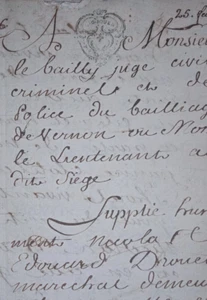 25.
A Monsie
le bailly juge civi
criminel et de
Police du bailliag
de Vernon ou Mon
le Lieutenant a
dit Siége
Supplie hum
ment Nicolas
Edouard Droue
marechal demeu